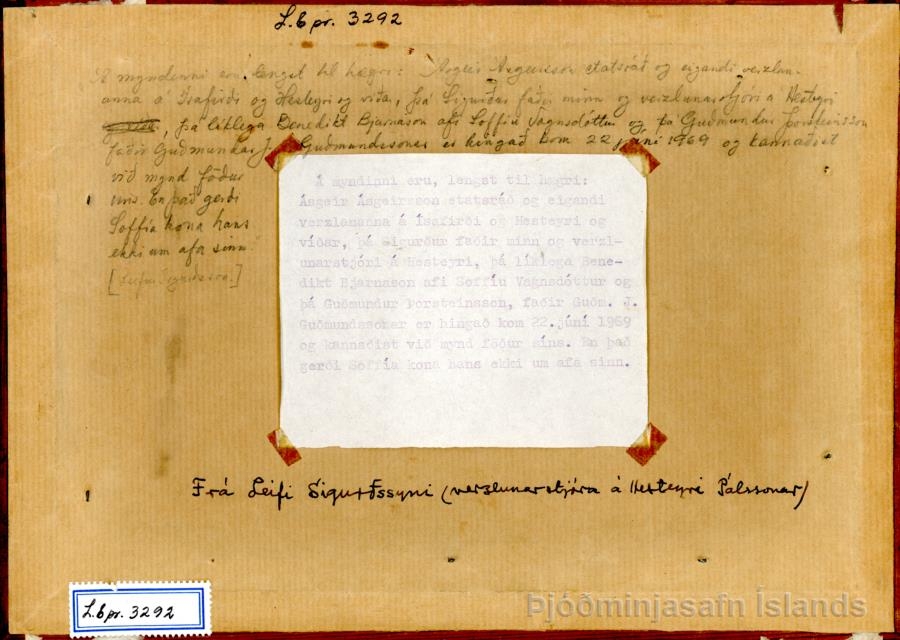 L.b pr. 3292
Á myndinni eru lengst til hægri: Ásgeir Ásgeirsson etatsráð og eigandi verzlan-
anna á Ísafirði og Hesteyri og víðar, þá Sigurður faðir minn og verzlunarstjóri á Hesteyri
, þá líklega Benedikt Bjarnason afi Soffíu Vagnsdóttur og þá Guðmundur Þorsteinsson
faðir Guðmundar J. Guðmundssonar er hingað kom 22 júní 1969 og kannaðist
við mynd föður
síns. En það gerði
Soffía kona hans
ekki um afa sinn
[Leifur Sigurðsson.]
Á myndinni eru, lengst til hægri:
Ásgeir Ásgeirsson etatsráð og eigandi
verzlananna á Ísafirði og Hesteyri og
víðar, þá Sigurður faðir minn og verzl-
unarstjóri á Hesteyri, þá líklega Bene-
dikt Bjarnason afi Soffíu Vagnsdóttur og
þá Guðmundur Þorsteinsson, faðir Guðm. J.
Guðmundssonar er hingað kom 22.júní 1969
og kannaðist við mynd föður síns. En það
gerði Soffía kona hans ekki um afa sinn.
Frá Leifi Sigurðssyni (verzlunarstjóra á Hesteyri Pálssonar)
L.b pr. 3292
Þjóðminjasafn Íslands